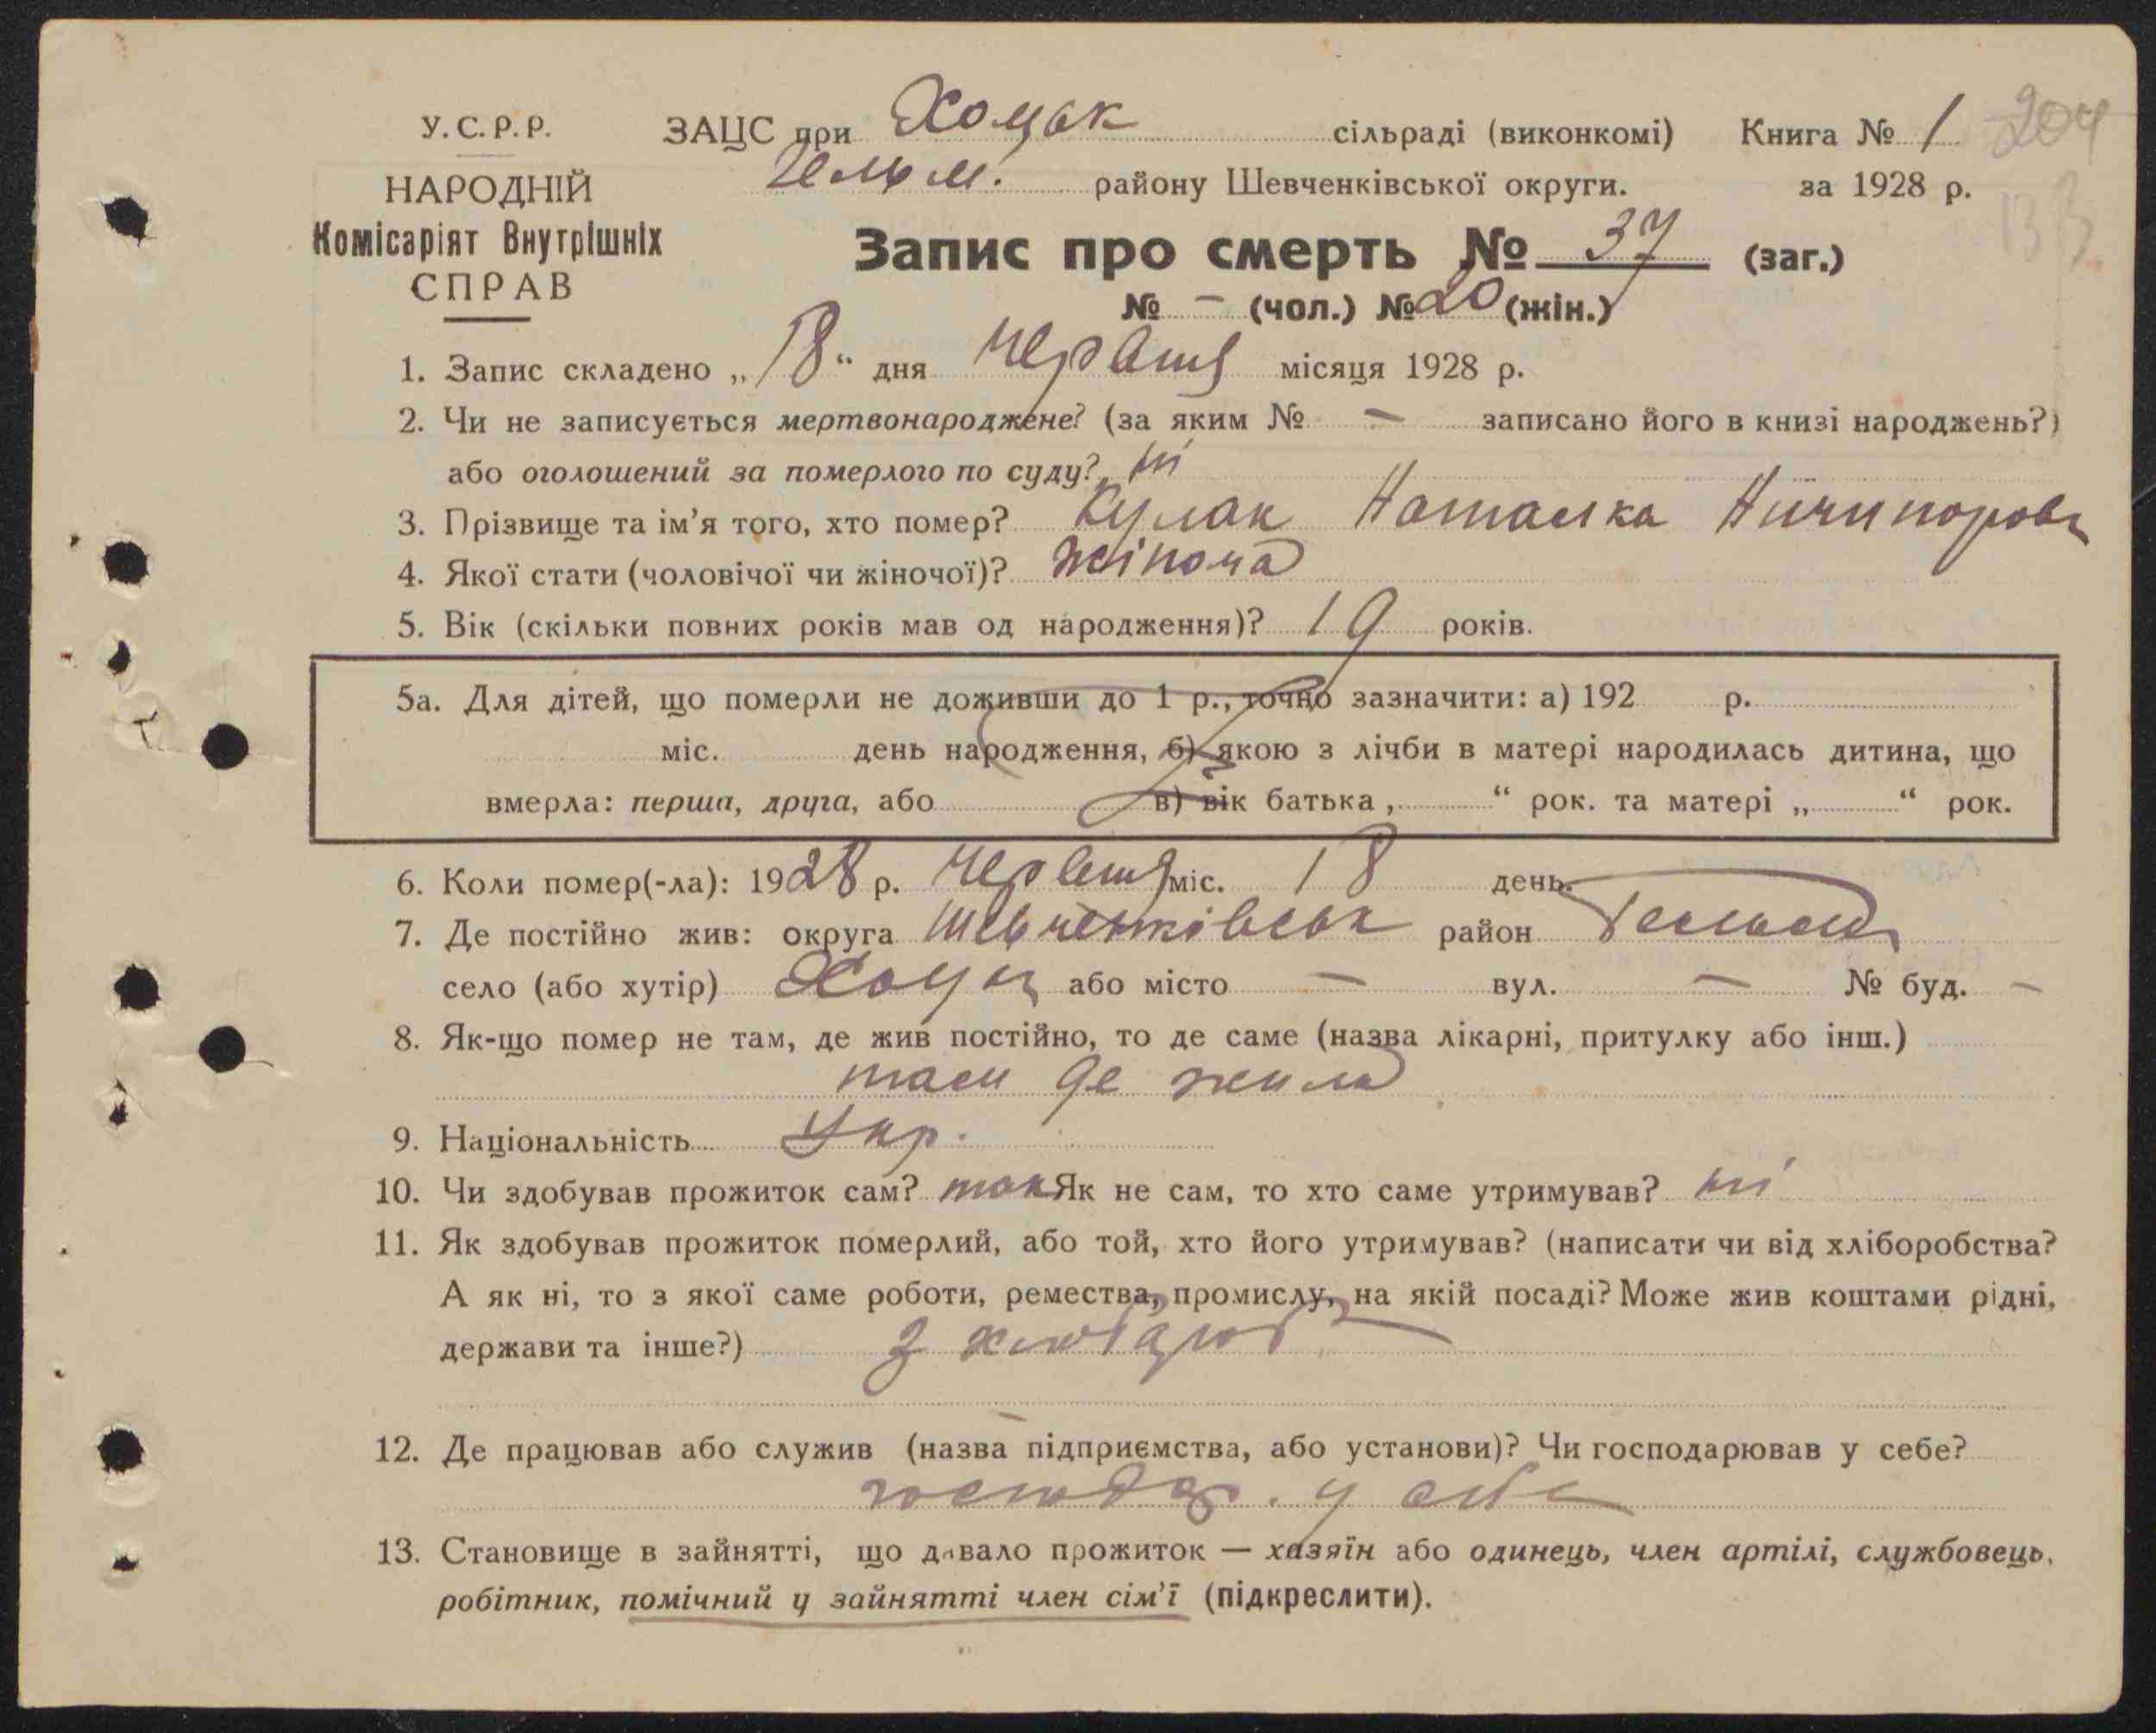 У.С.Р.Р. ЗАЦС при Хоцьк сільраді (виконкомі) Книга № 1 204
НАРОДНІЙ Гельм. району Шевченківської округи. за 1928 р.
133
Комісаріят Внутрішніх
СПРАВ
Запис про смерть № 37 (заг.)
№ – (чол.) № 20 (жін.)
1. Запис складено „18“ дня червня місяця 1928 р.
2. Чи не записується мертвонароджене? (за яким № – записано його в книзі народжень?)
або оголошений за померлого по суду? ні
3. Прізвище та ім’я того, хто помер? Кулак Наталка Ничипоров
4. Якої стати (чоловічої чи жіночої)? жіноча
5. Вік (скільки повних років мав од народження)? 19 років.
5а. Для дітей, що померли не доживши до 1 р., точно зазначити: а) 192 р.
міс. день народження, б) якою з лічби в матері народилась дитина, що
вмерла: перша, друга, або в) вік батька „ “ рок. та матері „ “ рок.
6. Коли помер(-ла): 1928 р. червня міс. 18 день.
7. Де постійно жив: округа Шевченківськ район Гельмяз
село (або хутір) Хоцьк або місто – вул. – № буд. –
8. Як-що помер не там, де жив постійно, то де саме (назва лікарні, притулку або інш.)
там де жила
9. Національність Укр.
10. Чи здобував прожиток сам? так Як не сам, то хто саме утримував? ні
11. Як здобував прожиток померлий, або той, хто його утримував? (написати чи від хліборобства?
А як ні, то з якої саме роботи, ремества, промислу, на якій посаді? Може жив коштами рідні,
держави та інше?) З хлібороб
12. Де працював або служив (назва підприємства, або установи)? Чи господарював у себе?
господар. у себе
13. Становище в зайнятті, що давало прожиток — хазяїн або одинець, член артілі, службовець,
робітник, помічний у зайнятті член сім’ї (підкреслити).